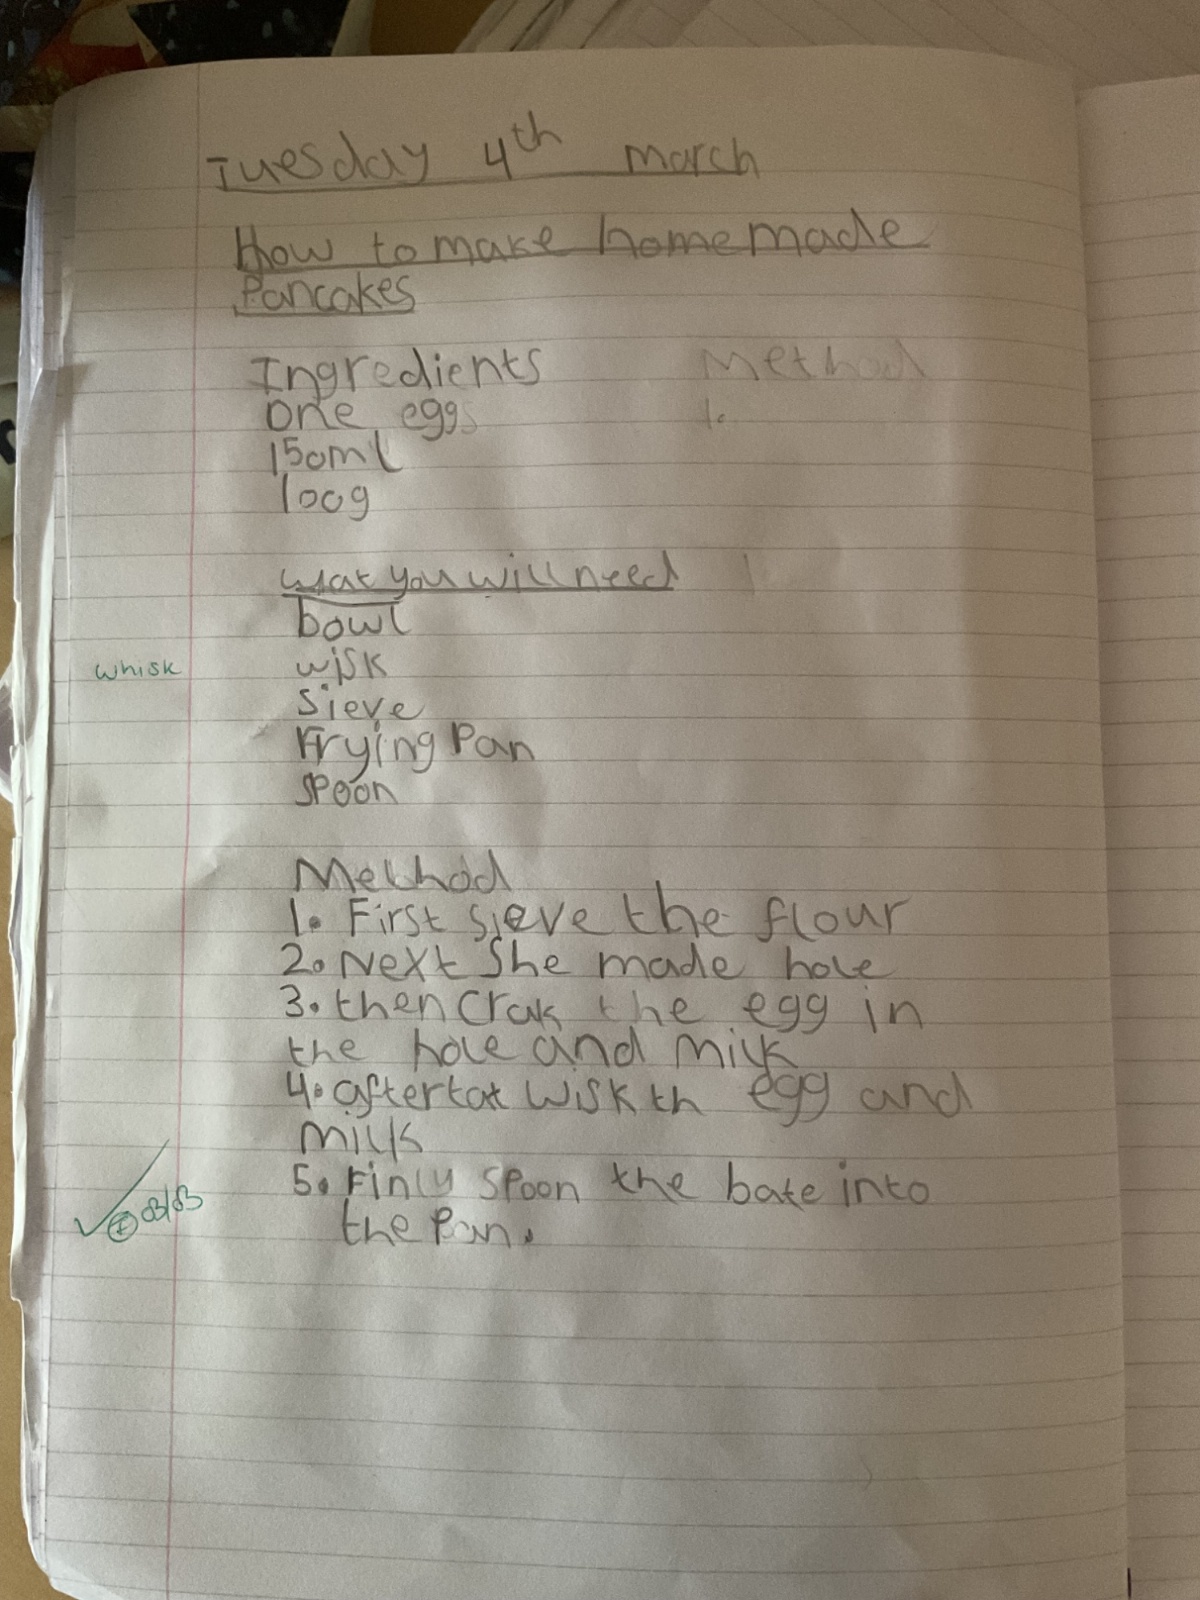 Tuesday 4th march
How to make homemade
Pancakes
Ingredients Method
one egg 1.
150ml
100g
wat you will need
bowl
whisk wisk
Sieve
Frying Pan
spoon
Method
1. First sieve the flour
2. Next She made hole
3. then crak the egg in
the hole and milk
4. after tat wisk th egg and
milk
5. Finly spoon the bate into
the Pan.